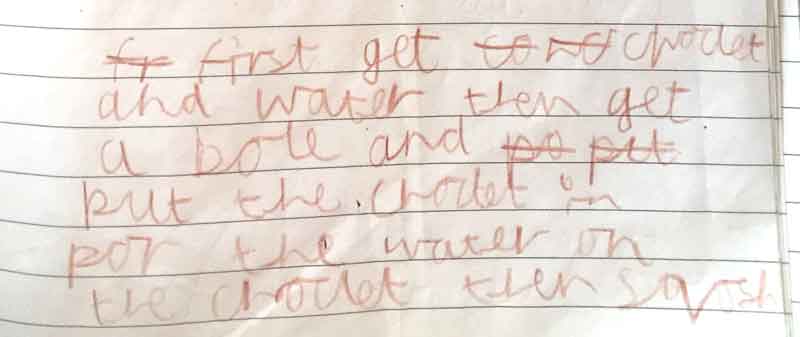 first get choclet
and water then get
a bole and
put the choclet in
por the water on
the choclet then sqosh